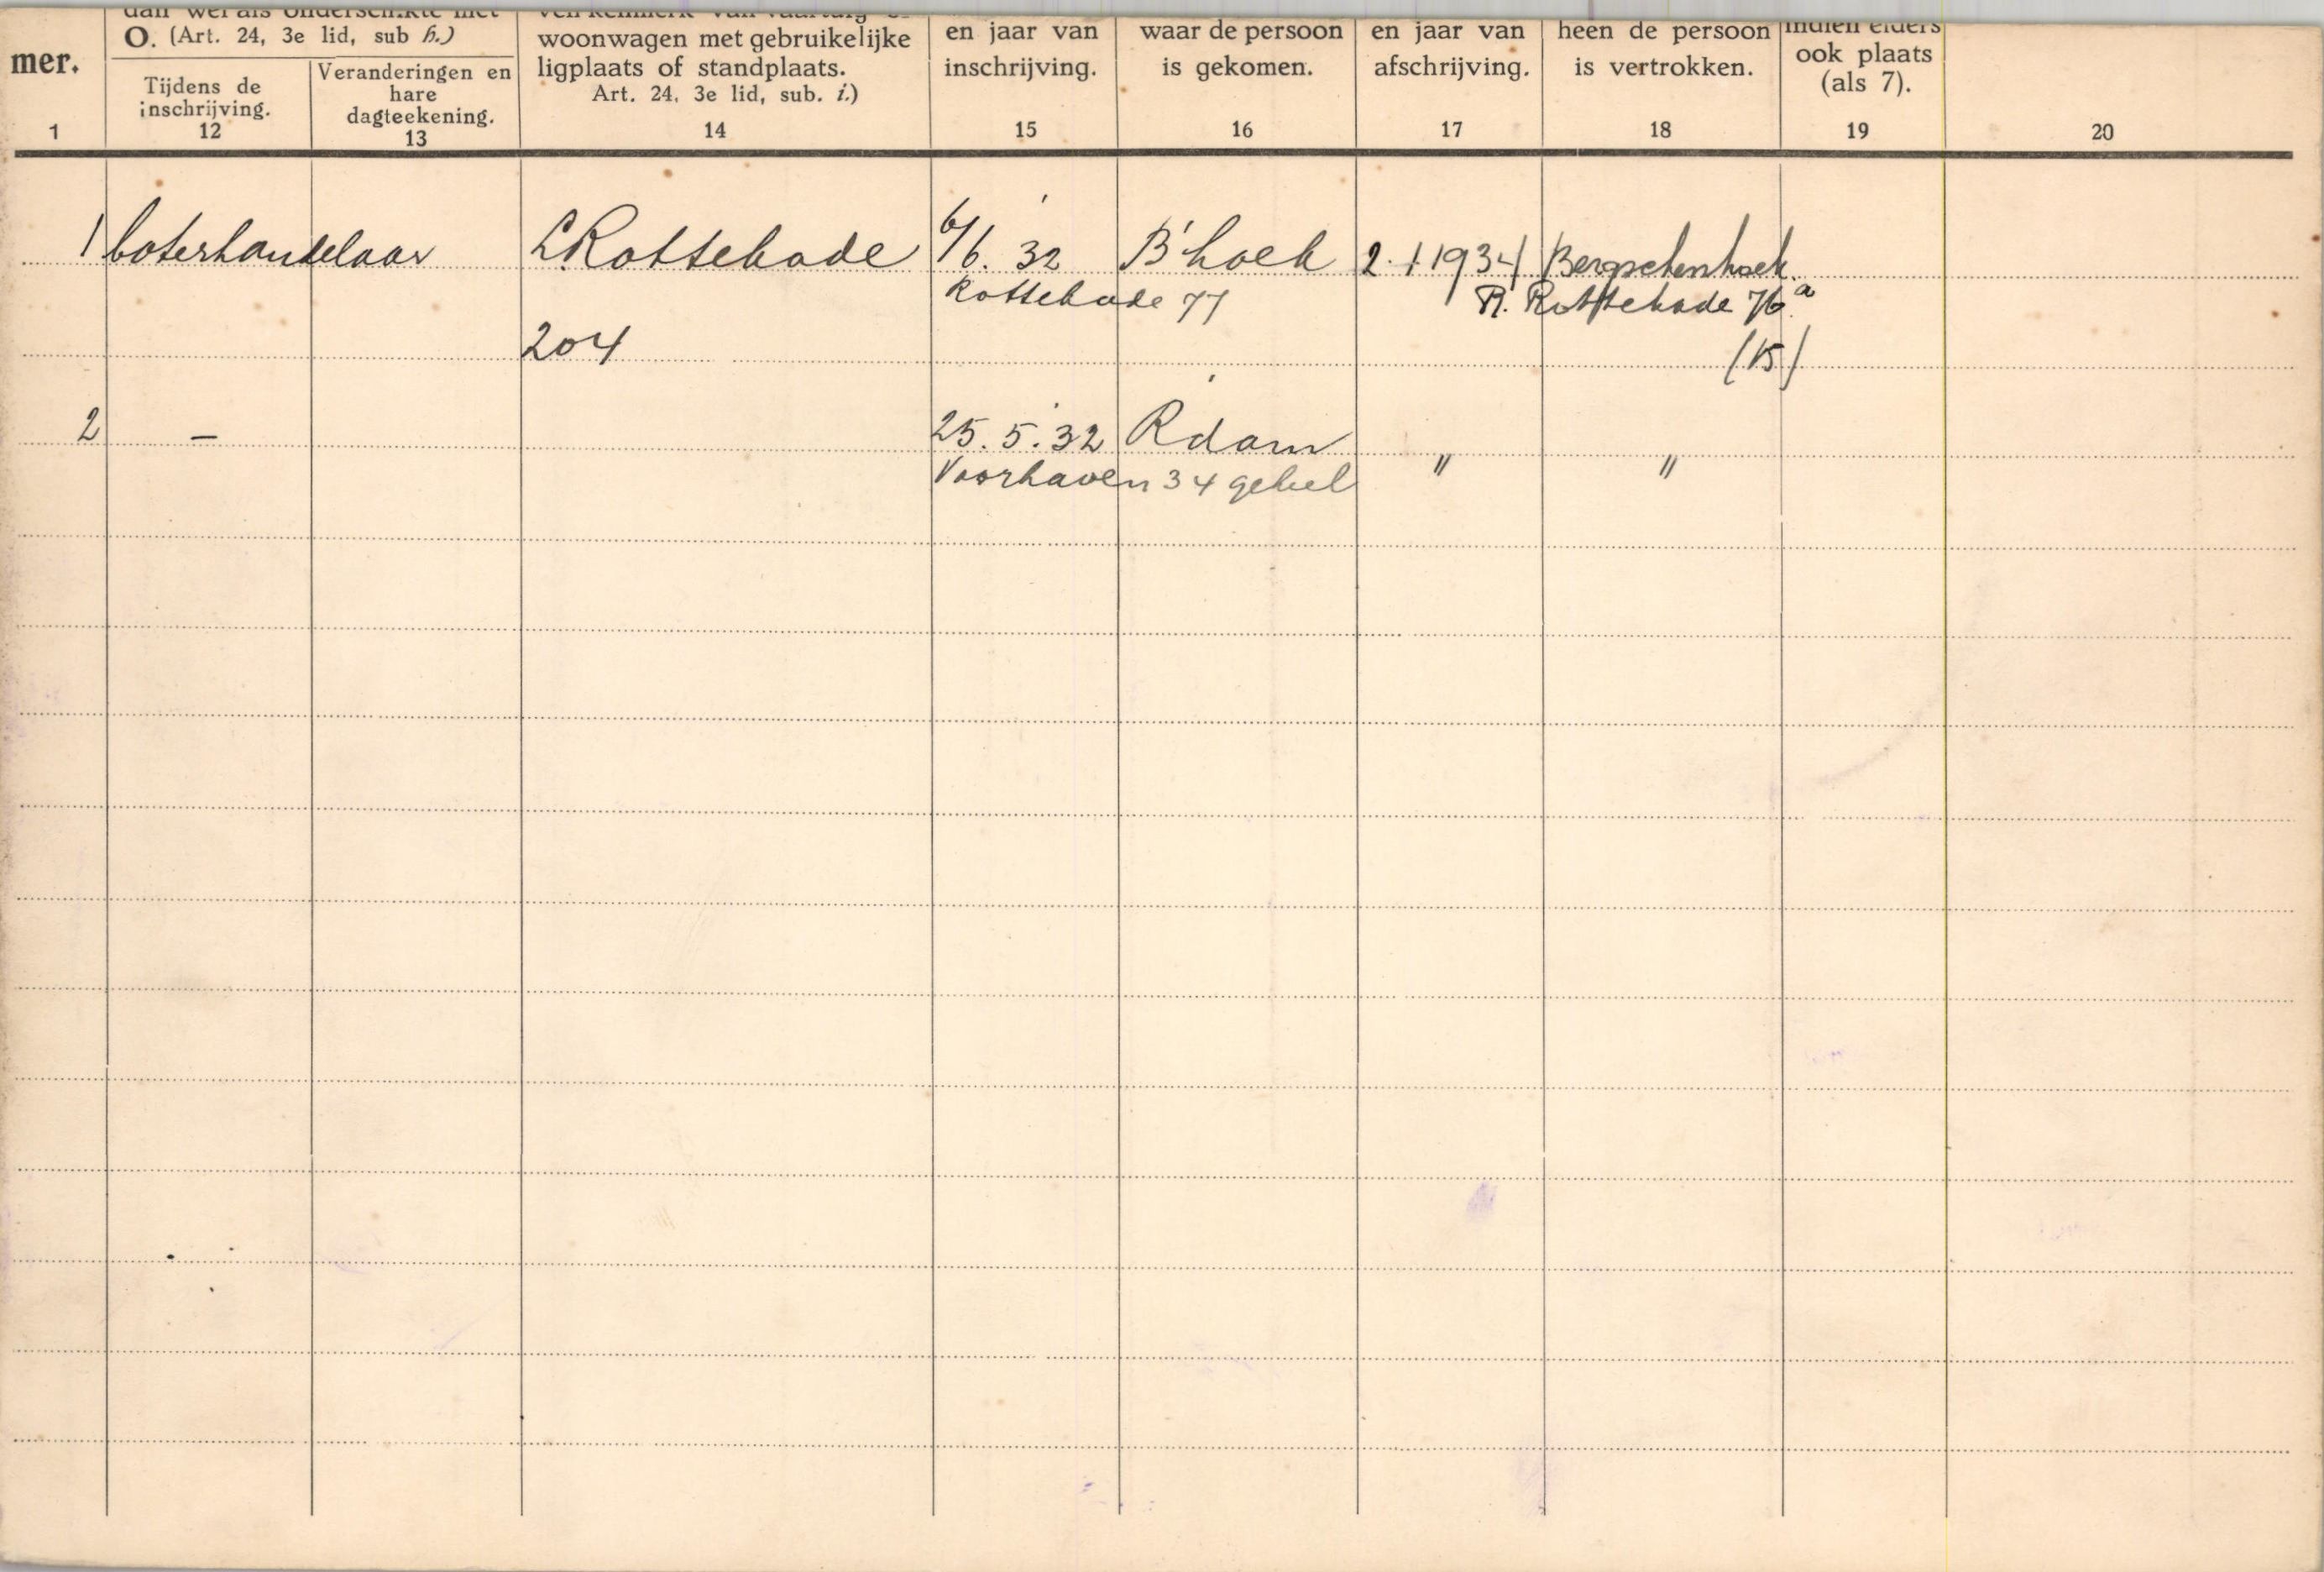 mer.
1
dan wel als ondergeschikte met
O. (Art. 24, 3e lid, sub h.)
Tijdens de
inschrijving.
12
Veranderingen en
hare
dagteekening.
13
woonwagen met gebruikelijke
ligplaats of standplaats.
Art. 24, 3e lid, sub. i.)
14
en jaar van
inschrijving.
15
waar de persoon
is gekomen.
16
en jaar van
afschrijving.
17
heen de persoon
is vertrokken.
18
indien elders
ook plaats
(als 7).
19
20
1 boterhandelaar L. Rottekade 6/6. 32 B'hoek 2.1 1934 Bergschenhoek.
Rottekade 77 R. Rottekade 76a
204 (15)
2 – 25.5.32 Rdam " "
Voorhaven 34 geheel